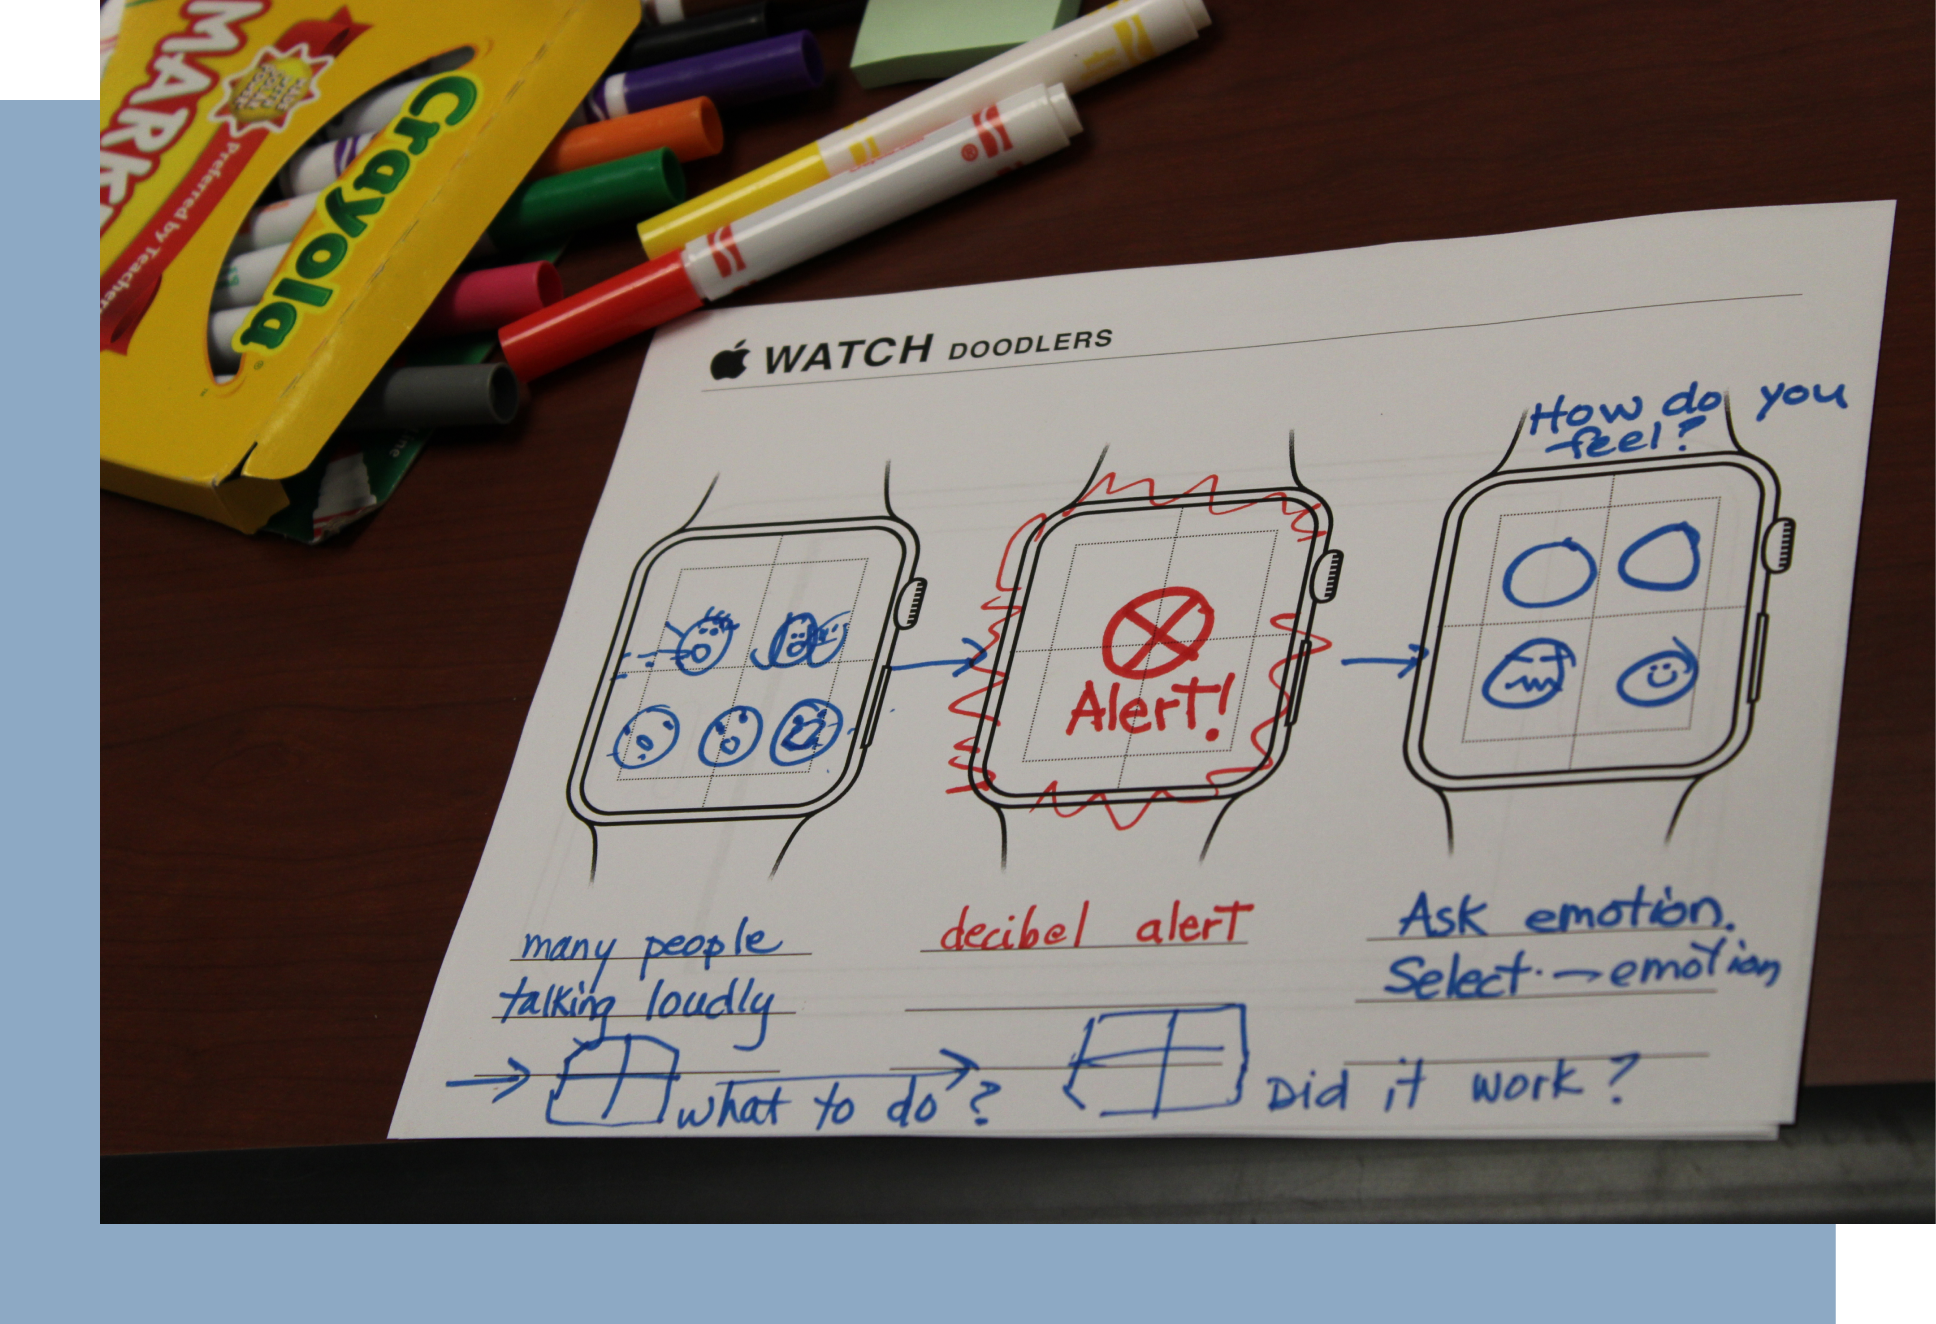 MARK
Crayola
Preferred by Teachers
WATCH DOODLERS
How do you
feel?
Alert!
many people
talking loudly
decibel alert
Ask emotion.
Select → emotion
→ what to do? → Did it work?